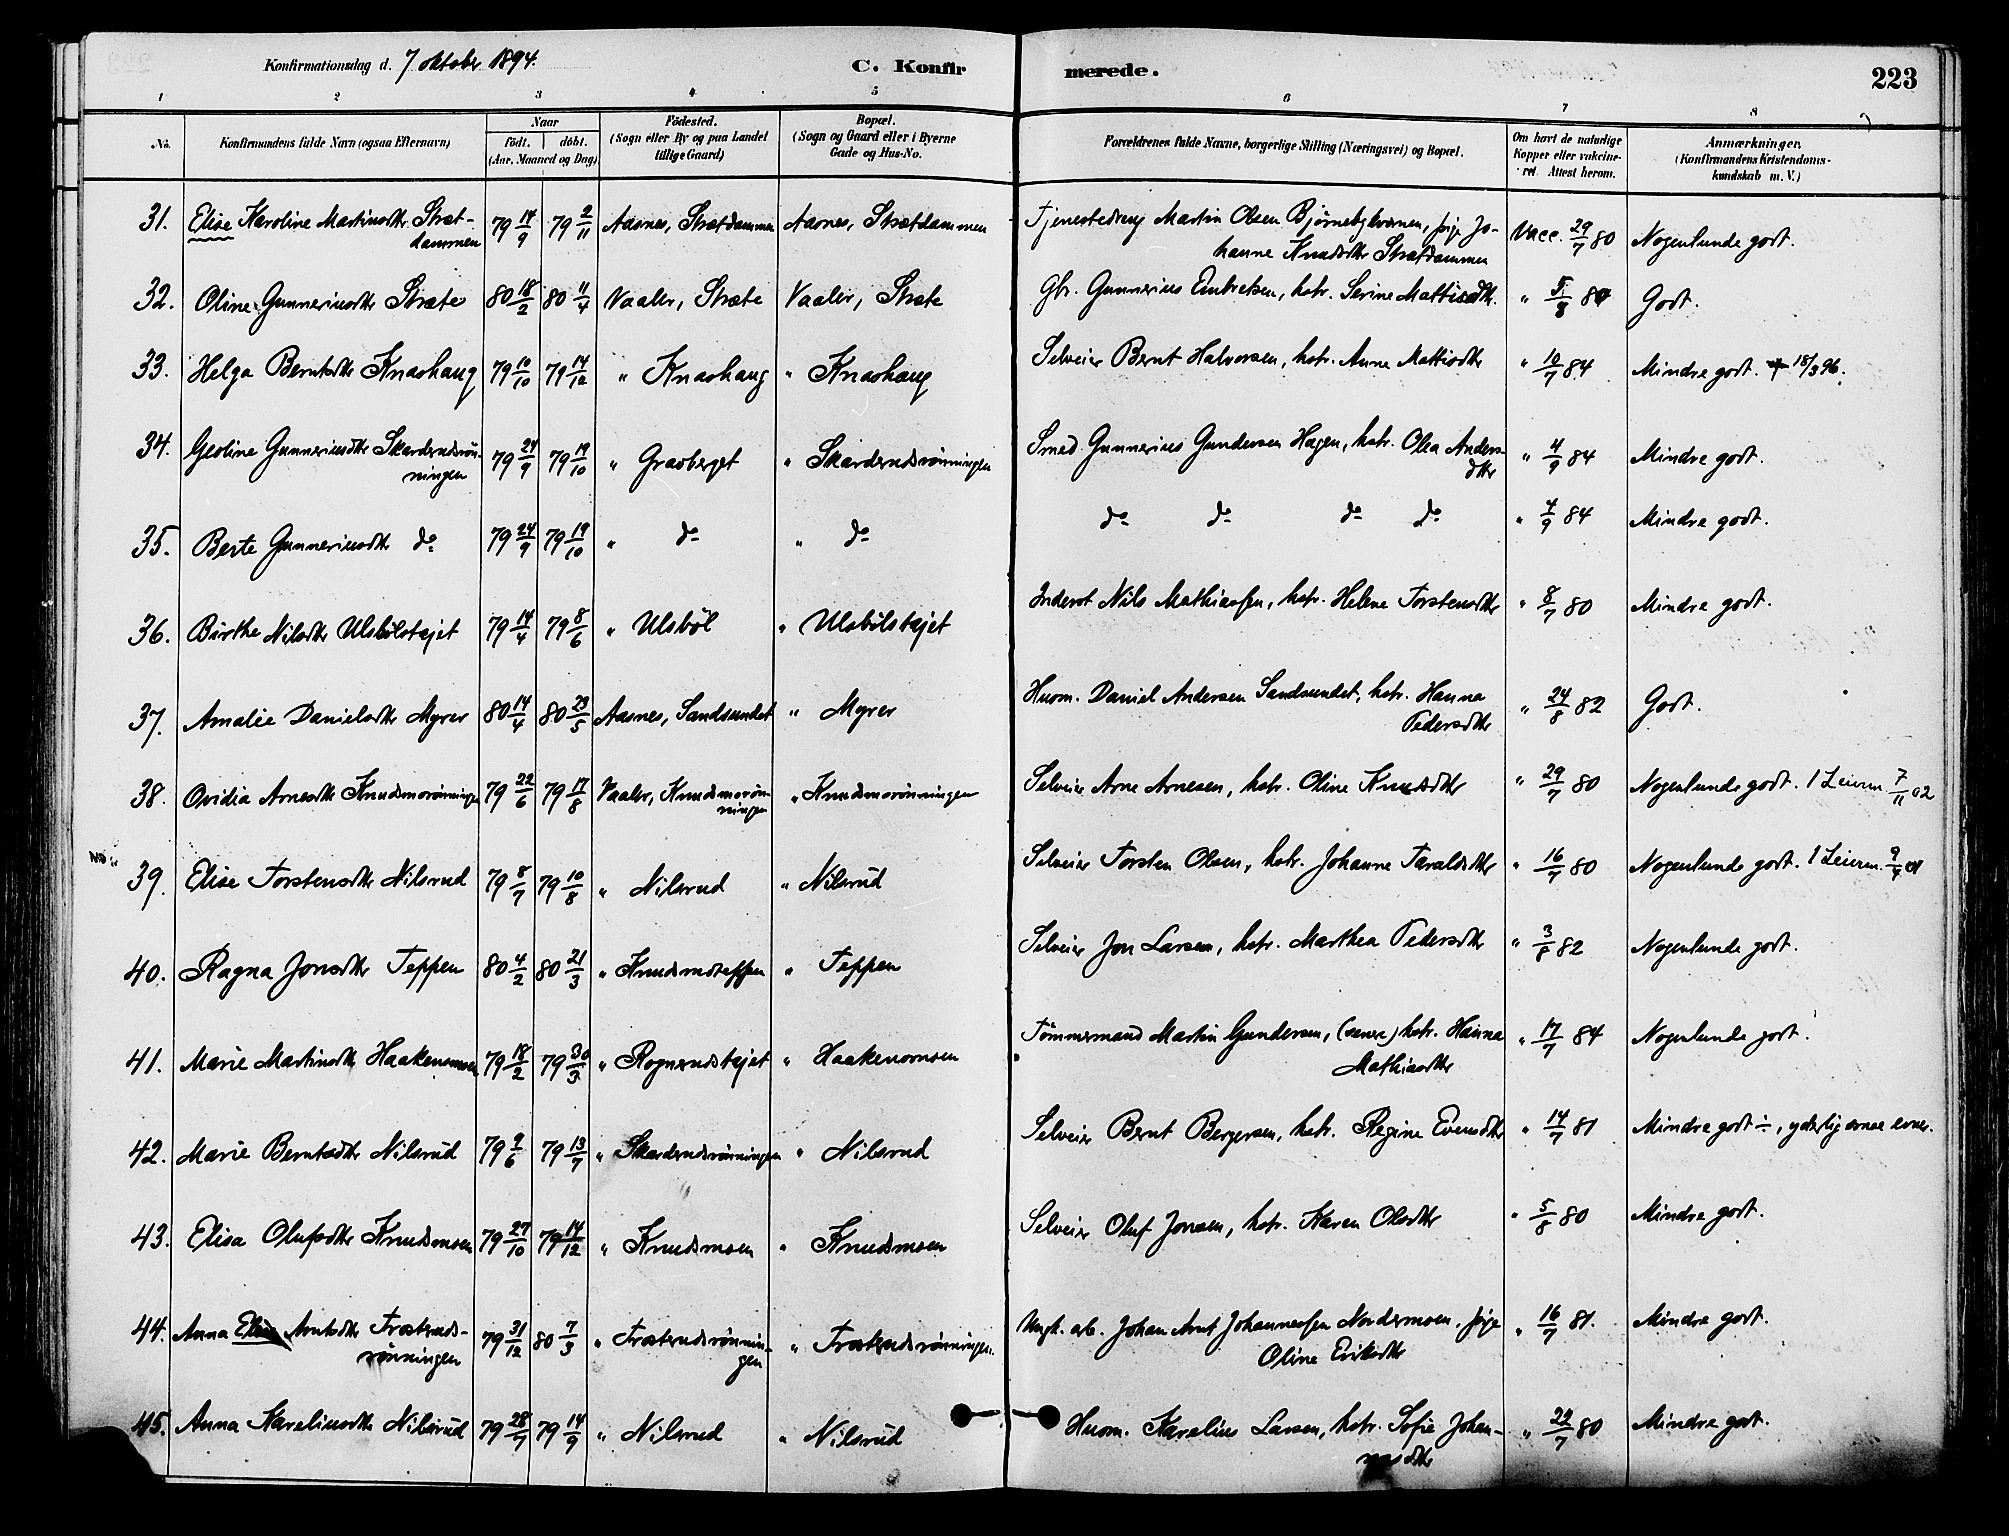 Konfirmationsdag d. 7 oktober 1894.
C. Konfirmerede.
223
1 2 3 4 5 6 7 8
No.
Konfirmandens fulde Navn (ogsaa Efternavn)
Naar
födt. döbt.
(Aar, Maaned og Dag)
Födested.
(Sogn eller By og paa Landet
tillige Gaard)
Bopæl.
(Sogn og Gaard eller i Byerne
Gade og Hus-No.
Forældrenes fulde Navne, borgerlige Stilling (Næringsvei) og Bopæl.
Om havt de naturlige
Kopper eller vakcine-
ret. Attest herom.
Anmærkninger.
(Konfirmandens Kristendoms-
kundskab m. V.)
31. Elise Karoline Martinsdtr Stræt- 79 14/9 79 2/11 Aasnes, Strætdammen Aasnes, Strætdammen Tjenestedreng Martin Olsen Bjørnebykværnen, pige Jo- Vacc. 29/7 80 Nogenlunde godt.
dammen hanne Knudsdtr Strætdammen
32. Oline Gunneriusdtr Stræte 80 18/2 80 11/4 Vaaler, Stræte Vaaler, Stræte Gbr. Gunnerius Embretsen, hstr. Serine Mattisdtr. " 5/8 84 Godt.
33. Helga Berntsdtr Knashaug 79 10/10 79 14/12 " Knashaug " Knashaug Selveier Bernt Halvorsen, hstr. Anne Mattisdtr " 10/7 84 Mindre godt. † 18/3 96.
34. Geoline Gunneriusdtr Skarderudsrøn- 79 24/9 79 19/10 " Gravberget " Skarderudsrønningen Smed Gunnerius Gundersen Hagen, hstr. Olea Anders- " 4/9 84 Mindre godt.
ningen dtr
35. Berte Gunneriusdtr do 79 24/9 79 19/10 " do " do do do do do " 4/9 84 Mindre godt.
36. Birthe Nilsdtr Ulsbölstajet 79 14/4 79 8/6 " Ulsböl " Ulsbölstajet Inderst Nils Mathiassen, hstr. Helene Torstensdtr " 8/7 80 Mindre godt.
37. Amalie Danielsdtr Myrer 80 14/4 80 23/5 Aasnes, Sandsundet " Myrer Husm. Daniel Andersen Sandsundet, hstr. Hanna " 24/8 82 Godt.
Pedersdtr
38. Ovidia Arnesdtr Knudsmorønningen 79 22/6 79 17/8 Vaaler, Knudsmorøn- " Knudsmorønningen Selveier Arne Arnesen, hstr. Oline Knudsdtr " 29/7 80 Nogenlunde godt. 1 Leierm. 7/11 02
ningen
39. Elise Torstensdtr Nilsrud 79 8/7 79 10/8 " Nilsrud " Nilsrud Selveier Torsten Olsen, hstr. Johanne Taraldsdtr " 16/7 80 Nogenlunde godt. 1 Leierm. 9/4 01
40. Ragna Jonsdtr Teppen 80 4/2 80 21/3 " Knudsmoteppen " Teppen Selveier Jon Larsen, hstr. Marthea Pedersdtr " 3/8 82 Nogenlunde godt.
41. Marie Martinsdtr Haakensmoen 79 18/2 79 30/3 " Rognerudstajet " Haakensmoen Tømmermand Martin Gundersen, (senere) hstr. Hanna " 17/7 84 Nogenlunde godt.
Mathiasdtr
42. Marie Berntsdtr Nilsrud 79 9/6 79 13/7 " Skarderudsrønningen " Nilsrud Selveier Bernt Bergersen, hstr. Regine Evensdtr " 14/7 81 Mindre godt ÷, yderlig smaa evner.
43. Elisa Olufsdtr Knudsmoen 79 27/10 79 14/12 " Knudsmoen " Knudsmoen Selveier Oluf Jonsen, hstr. Karen Olsdtr " 5/8 80 Mindre godt.
44. Anna Elise Arntsdtr Frostruds- 79 31/12 80 7/3 " Frostrudsrønnin- " Frostrudsrønningen. Ungk. arb. Johan Arnt Johannessen Nordermoen. pige " 16/7 81. Mindre godt.
rønningen gen Oline Eriksdtr
45. Anna Kareliusdtr Nilsrud 79 28/7 79 14/9 " Nilsrud " Nilsrud Husm. Karelius Larsen, hstr. Sofie Johan- " 29/7 80 Mindre godt.
nesdtr